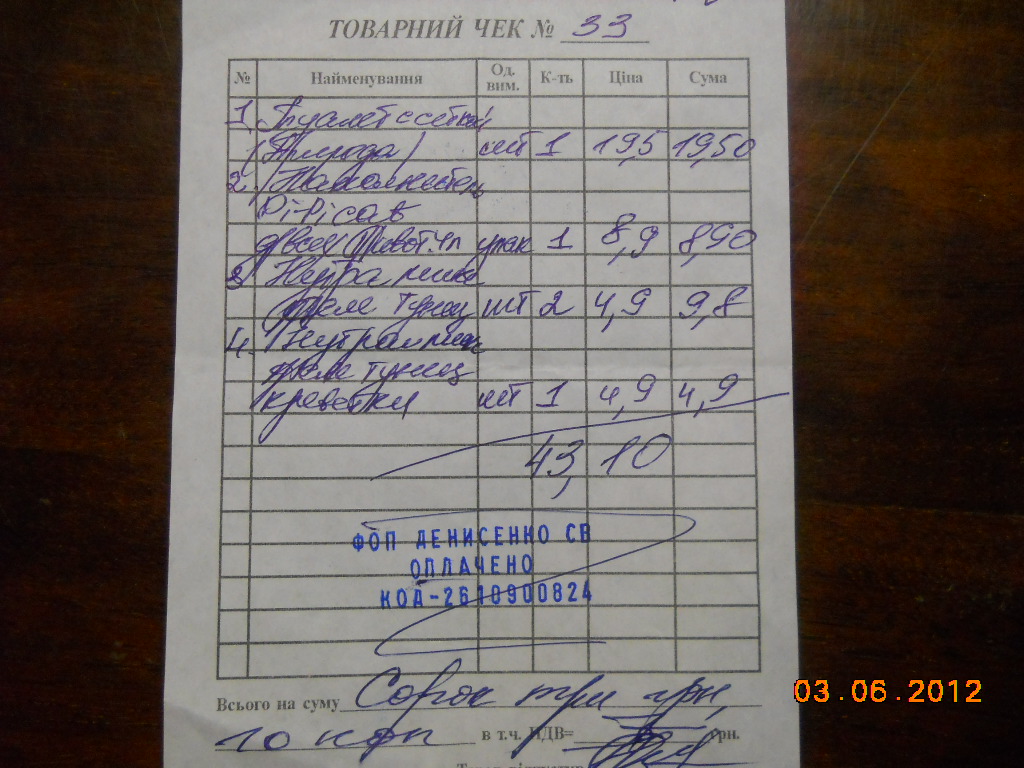 ТОВАРНИЙ ЧЕК № 33
№ Найменування Од. вим. К-ть Ціна Сума
1. Туалет с сеткой
(Природа) шт 1 19,5 19,50
2. Наполнитель
Pi-Pi cat
упак 1 8,9 8,90
3
желе тунец шт 2 4,9 9,8
4.
желе тунец
креветки шт 1 4,9 4,9
43,10
ФОП ДЕНИСЕНКО СВ
ОПЛАЧЕНО
КОД-2610900824
Всього на суму Сорок три грн,
10 коп в т.ч. ПДВ= грн.
03.06.2012